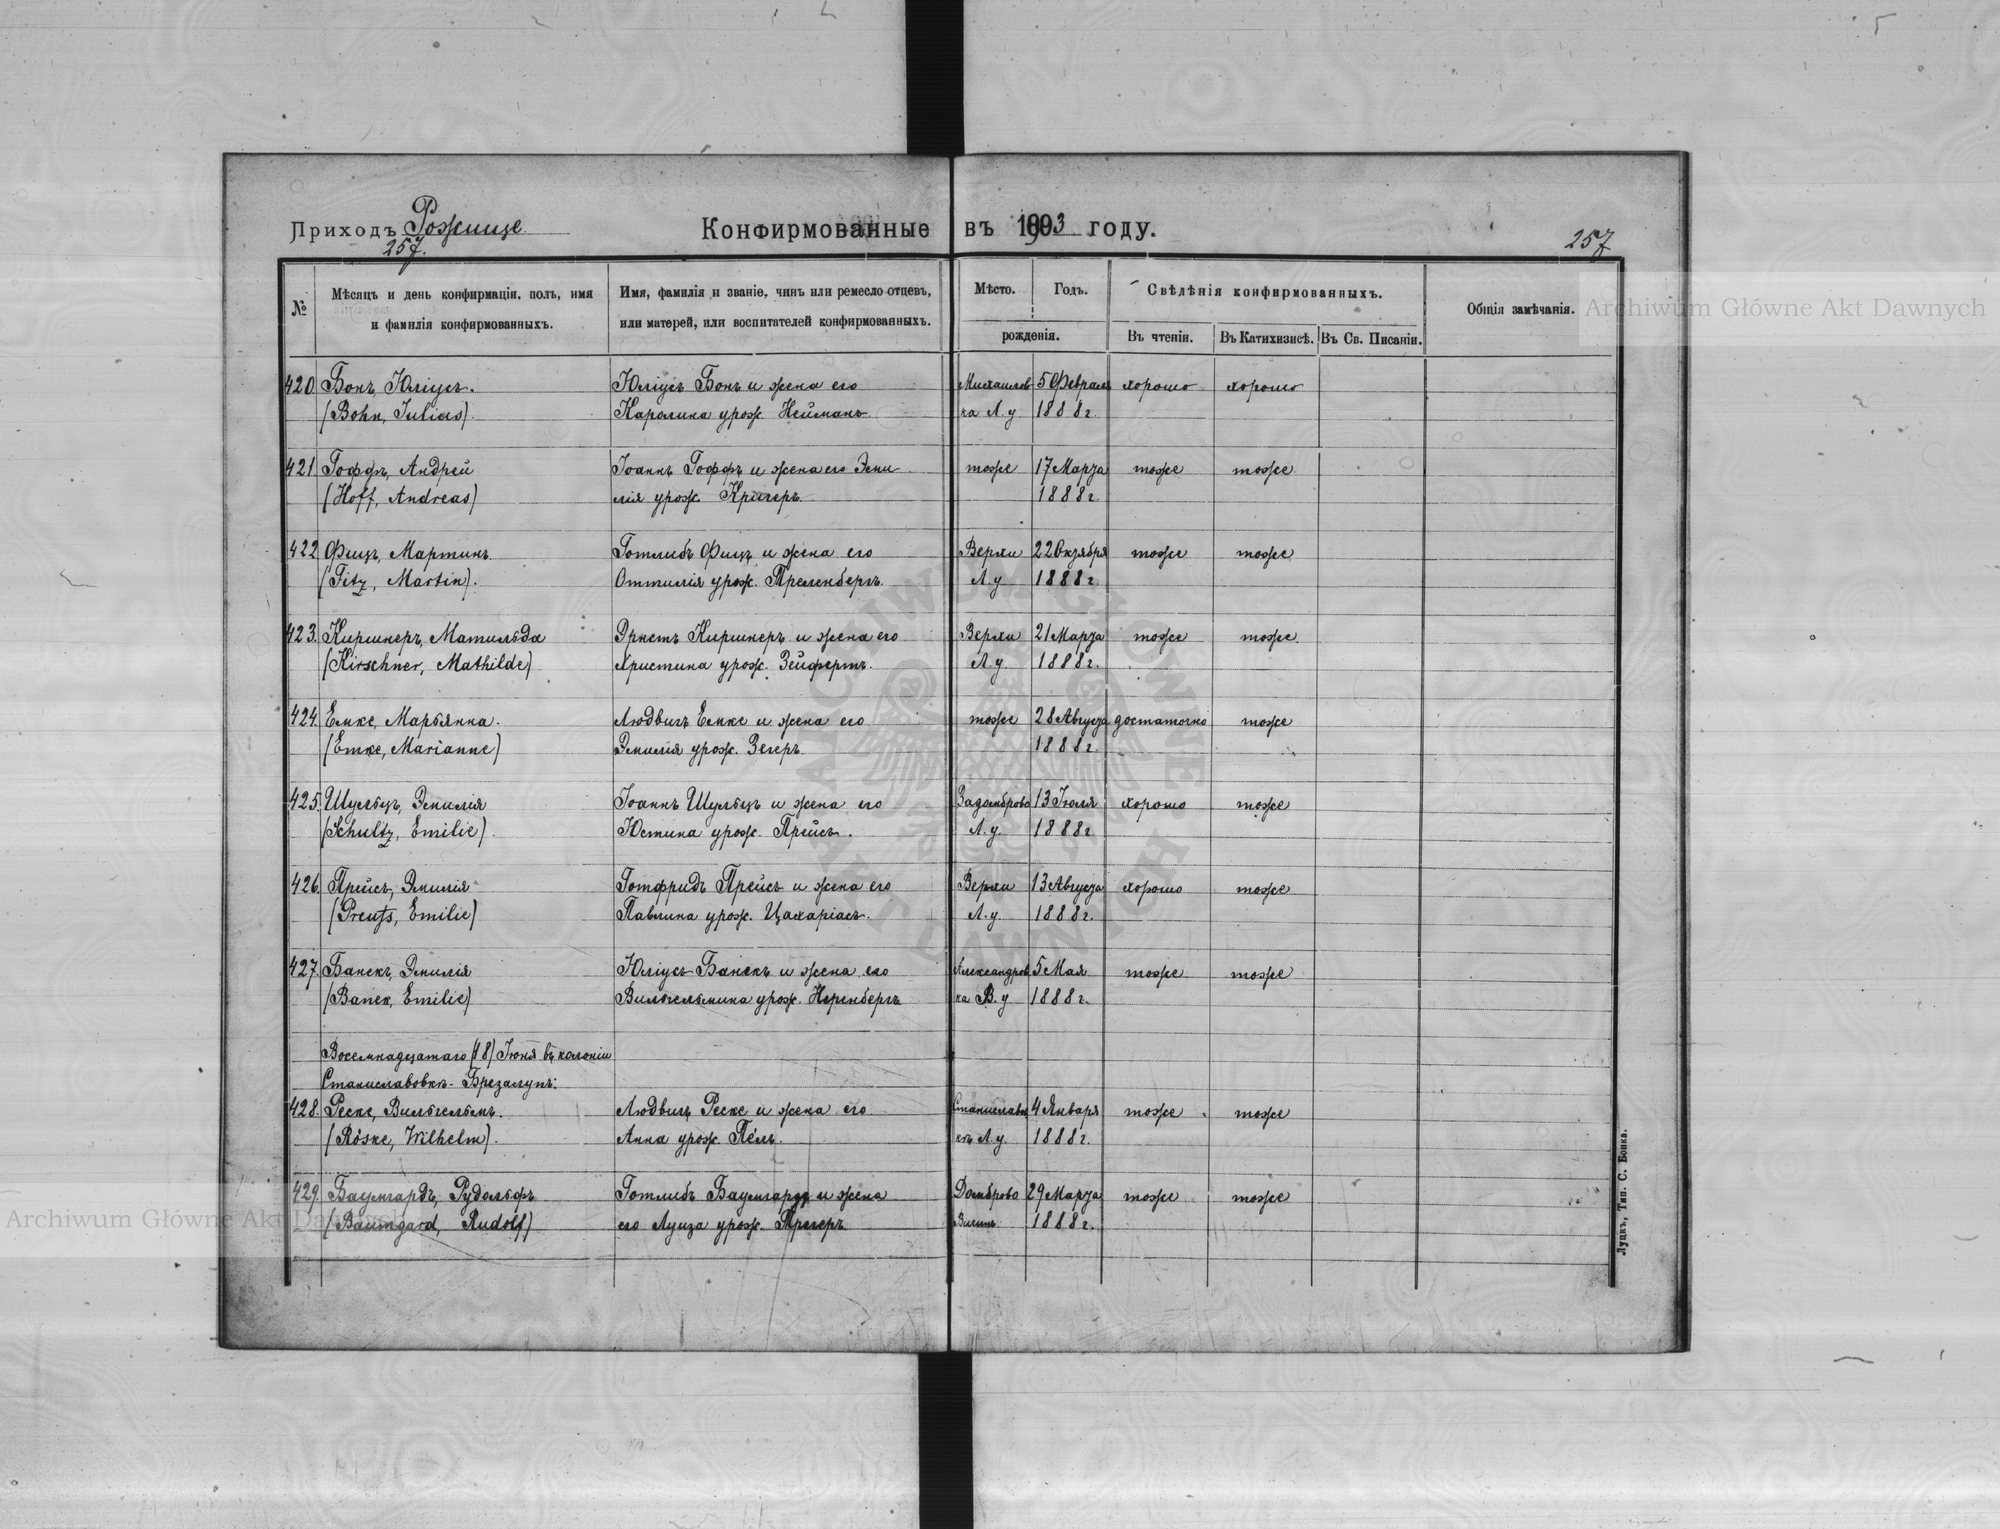 Приходъ Рожище
257.
Конфирмованные въ 1903 году.
257
№
Мѣсяцъ и день конфирмаціи, полъ, имя
и фамилія конфирмованныхъ.
Имя, фамилія и званіе, чинъ или ремесло отцевъ,
или матерей, или воспитателей конфирмованныхъ.
Мѣсто. Годъ.
рожденія.
Свѣдѣнія конфирмованныхъ.
Въ чтеніи. Въ Катихизисѣ. Въ Св. Писаніи.
Общія замѣчанія.
Archiwum Główne Akt Dawnych
420. Бонъ, Юліусъ. Юліусъ Бонъ и жена его Михаилов 5 Февраля хорошо хорошо
(Bohn, Julius). Каролина урож. Нейманъ. ка Л. у. 1888 г.
421. Гоффъ, Андрей Іоаннъ Гоффъ и жена его Эми тоже 17 Марта тоже тоже
(Hoff, Andreas) лія урож. Кригеръ 1888 г.
422 Фицъ, Мартинъ. Готлибъ Фицъ и жена его Верхи 22 Октября тоже тоже
(Fitz, Martin). Оттилія урож. Преленбергъ. Л. у 1888 г.
423. Киршнеръ, Матильда Эрнстъ Киршнеръ и жена его Верхи 21 Марта тоже тоже.
(Kirschner, Mathilde) Христина урож. Зейфертъ. Л. у. 1888 г.
424. Емке, Марьянна. Людвигъ Емке и жена его тоже 28 Августа достаточно тоже
(Emke, Marianne) Эмилія урож. Зегеръ. 1888 г.
425. Шульцъ, Эмилія Іоаннъ Шульцъ и жена его Задомброво 13 Іюля хорошо тоже
(Schultz, Emilie). Юстина урож. Прейсъ. Л. у. 1888 г.
426. Прейсъ, Эмилія Готфридъ Прейсъ и жена его Верхи 13 Августа хорошо тоже
(Preuß, Emilie) Павлина урож. Цахаріасъ. Л. у. 1888 г.
427. Банекъ, Эмилія Юліусъ Банекъ и жена его Александров 5 Мая тоже тоже
(Banek, Emilie) Вильгельмина урож. Неренбергъ ка В. у 1888 г.
Восемнадцатаго (18) Іюня въ колоніи
Станиславовкѣ-Брезалупъ:
428. Реске, Вильгельмъ. Людвигъ Реске и жена его Станиславов 4 Января тоже тоже
(Röske, Wilhelm). Анна урож. Пёль. кѣ Л. у. 1888 г.
429. Баумгардъ, Рудольфъ Готлибъ Баумгардъ и жена Домброво 29 Марта тоже тоже
(Baumgard, Rudolf) его Луиза урож. Трегеръ 1888 г.
Луцкъ, Тип. С. Бонка.
Archiwum Główne Akt Dawnych
ARCHIWUM GŁÓWNE AKT DAWNYCH